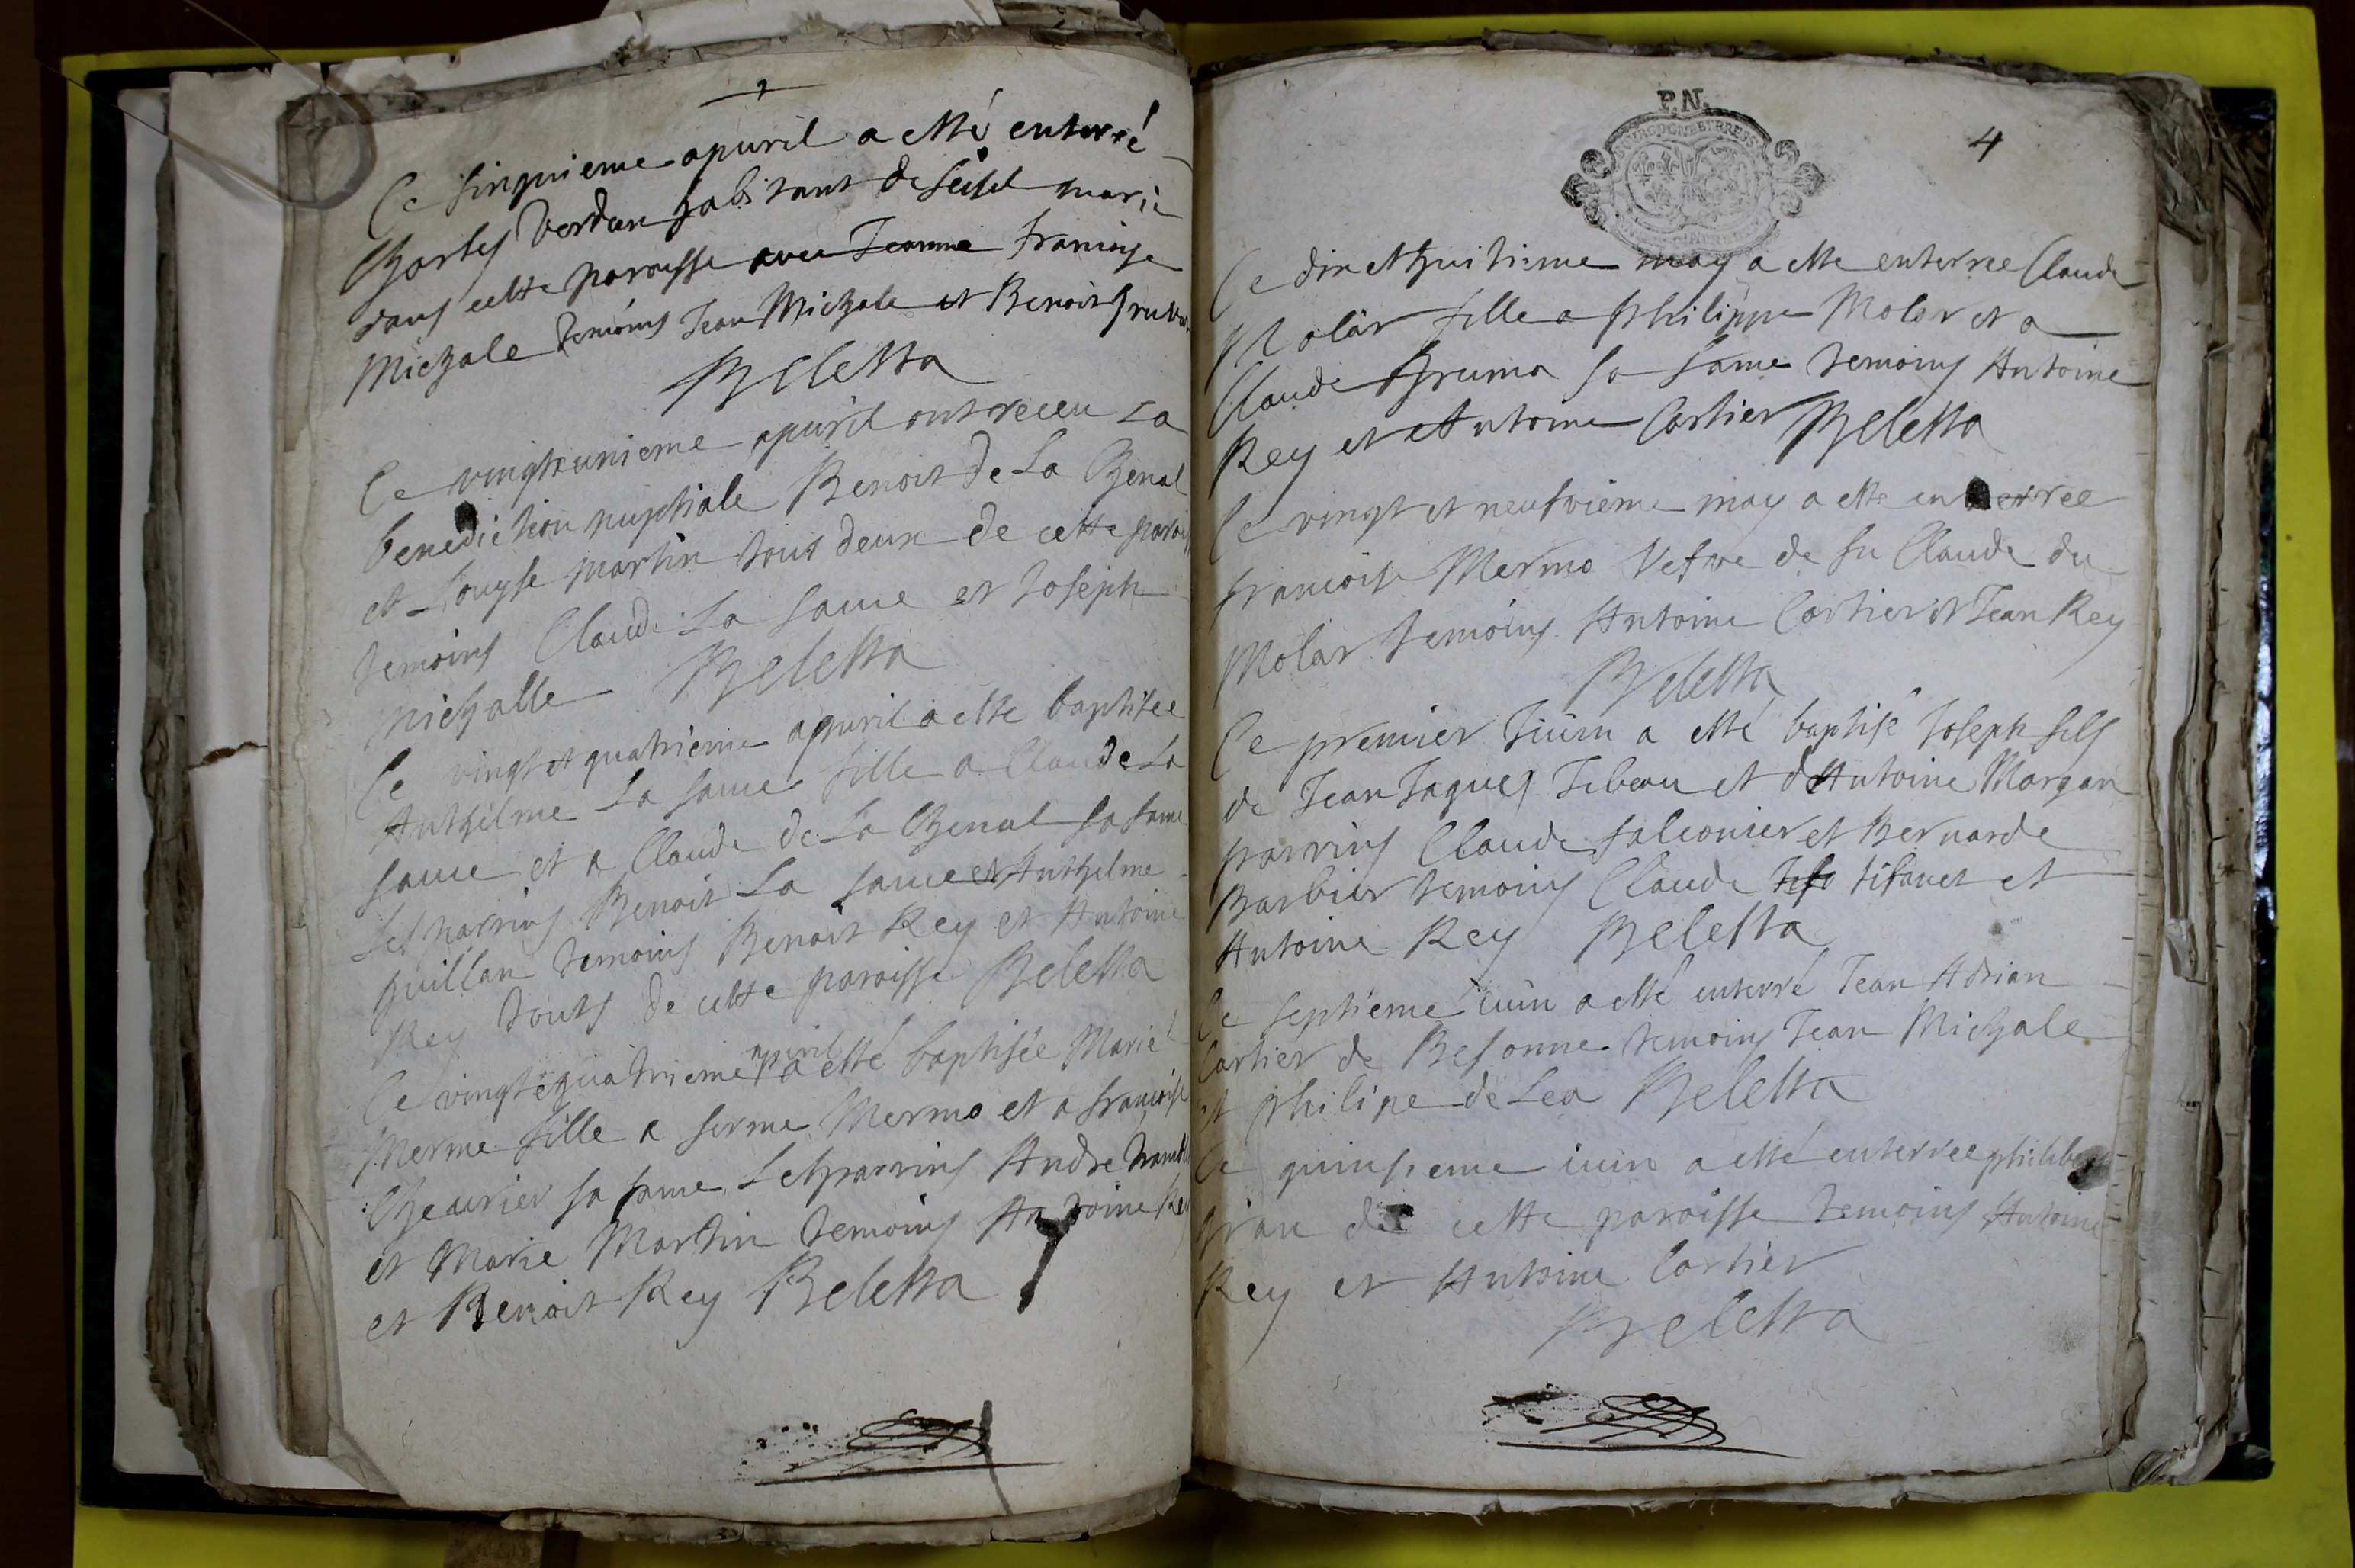 Ce sinquieme apuril a esté enterré
Charles Verdan habitant de Seisel marié
dans cette paroisse avec Jeanne françoise
Michale temoins Jean Michale et Benoit
Beletta
Ce vingteunieme apuril ont receu La
benediction nuptiale Benoit de La Chenal
et Louyse martin tous deux de cette parois
temoins Claude La Saue et Joseph
michalle Beletta
Ce vingt et quatrieme apuril a este baptisee
Anthelme La saue fille a Claude La
saue et a Claude de La Chenal sa fame
Les parrins Benoit La saue et Anthelme
guillan temoins Benoit Rey et Antoine
Rey touts de cette paroisse Beletta
Ce vingt et quatrieme apuril a esté baptisée Marie
Merme fille a ferme Mermo et a françoise
Cheurier sa fame Les parrins Andre
et Marie Martin temoins Antoine Rey
et Benoit Rey Beletta
P.N.
4
Ce dix et huitieme may a este enterree Claude
Molar fille a philippe Molar et a
Claude Gruma sa fame temoins Antoine
Rey et Antoine Cartier Beletta
Ce vingt et neufvieme may a este enterree
françoise Mermo Vefve de fu Claude du
Molar temoins Antoine Cartier et Jean Rey
Beletta
Ce premier Juin a esté baptisé Joseph fils
de Jean Jaques Tibeau et d'Antoine Morgan
parrins Claude falconier et Bernarde
Barbier temoins Claude tifanet et
Antoine Rey Beletta
Ce septieme iuin a esté enterré Jean Adrian
Cartier de Besonne temoins Jean Michale
et philipe de Lea Beletta
Ce quinsieme iuin a esté enterree philiber
de cette paroisse temoins Antoine
Rey et Antoine Cartier
Beletta